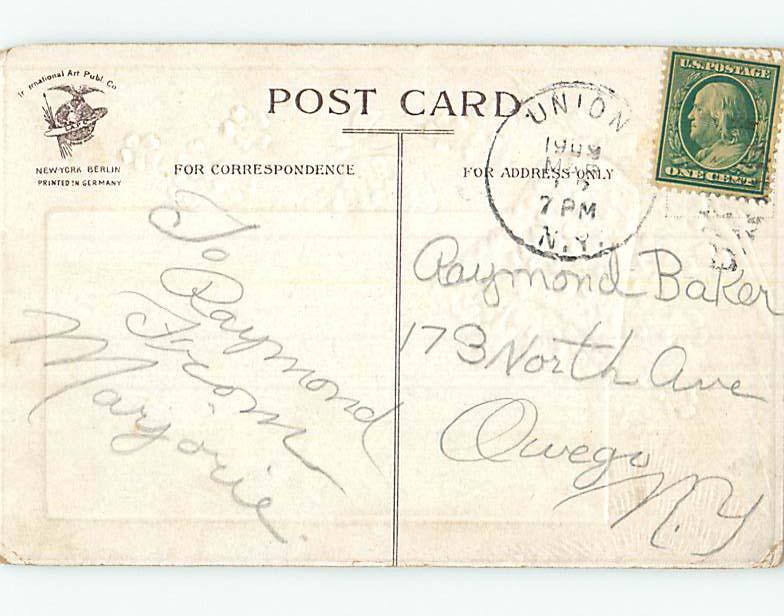 International Art Publ. Co.
NEW-YORK BERLIN
PRINTED IN GERMANY
POST CARD
FOR CORRESPONDENCE
FOR ADDRESS ONLY
UNION
1909
MAR
7 PM
N.Y.
U.S. POSTAGE
ONE CENT
To
Raymond
From
Marjorie.
Raymond Baker
173 North Ave
Owego
N.Y